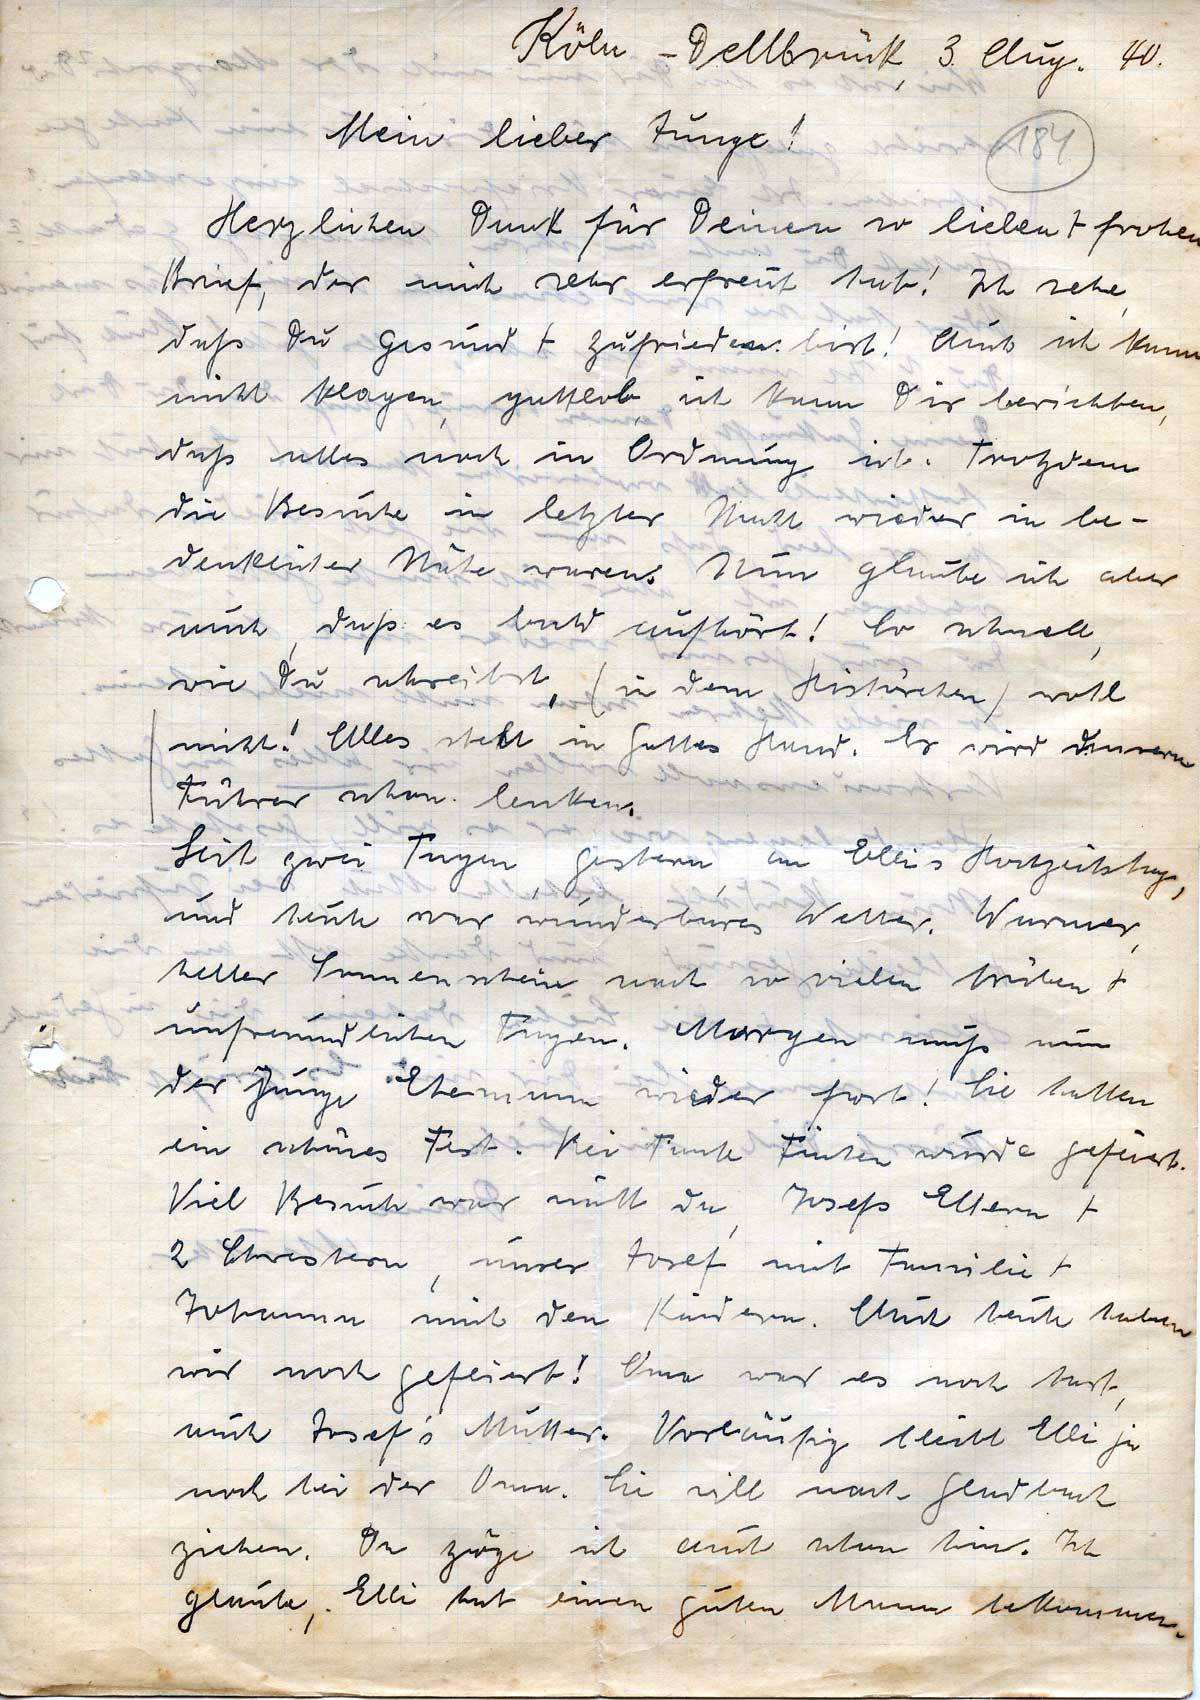 Köln - Dellbrück, 3. Aug. 40.
184
Mein lieber Junge!
Herzlichen Dank für Deinen so lieben + frohen
Brief, der mich sehr erfreut hat! Ich sehe,
daß Du gesund + zufrieden bist! Auch ich kann
nicht klagen, gottlob, ich kann Dir berichten,
daß alles noch in Ordnung ist. Trotzdem
die Besuche in letzter Nacht wieder in be-
denklicher Nähe waren. Nun glaube ich aber
auch, daß es bald aufhört! So schnell,
wie Du schreibst, (in dem Histörchen) wohl
nicht! Alles steht in Gottes Hand. Er wird unsern
Führer schon lenken.
Seit zwei Tagen, gestern, an Ellis Hochzeitstag,
und heute war wunderbares Wetter. Warmer,
heller Sonnenschein nach so vielen trüben +
unfreundlichen Tagen. Morgen muß nun
der junge Ehemann wieder fort! Sie hatten
ein schönes Fest. Bei Tante Finchen wurde gefeiert.
Viel Besuch war nicht da, Josefs Eltern +
2 Schwestern, unser Josef mit Familie +
Johanna mit den Kindern. Auch heute haben
wir noch gefeiert! Oma war es noch hart,
auch Josef's Mutter. Vorläufig bleibt Elli ja
noch bei der Oma. Sie will nach Gladbach
ziehen. Da zöge ich auch schon hin. Ich
glaube, Elli hat einen guten Mann bekommen.